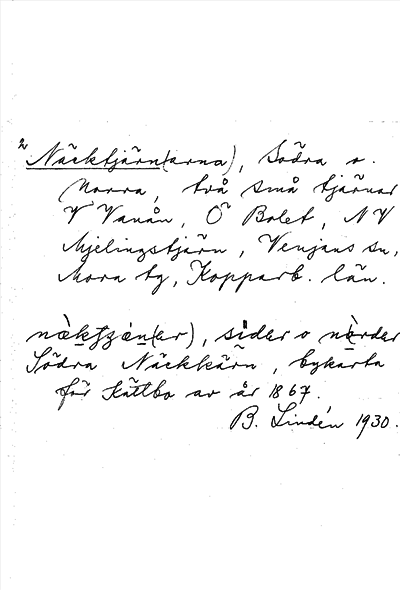 2 Näcktjärn(arna), Södra o.
Norra, två små tjärnar
V Vanån, Ö Bolet, NV
Mjelingstjärn, Venjans sn,
Mora tg, Kopparb. län.
næ̀kţæ̀n(ar), sìdar o nè̠rdar
Södra Näckkärn, bykarta
för Kättbo av år 1867.
B. Lindén 1930.